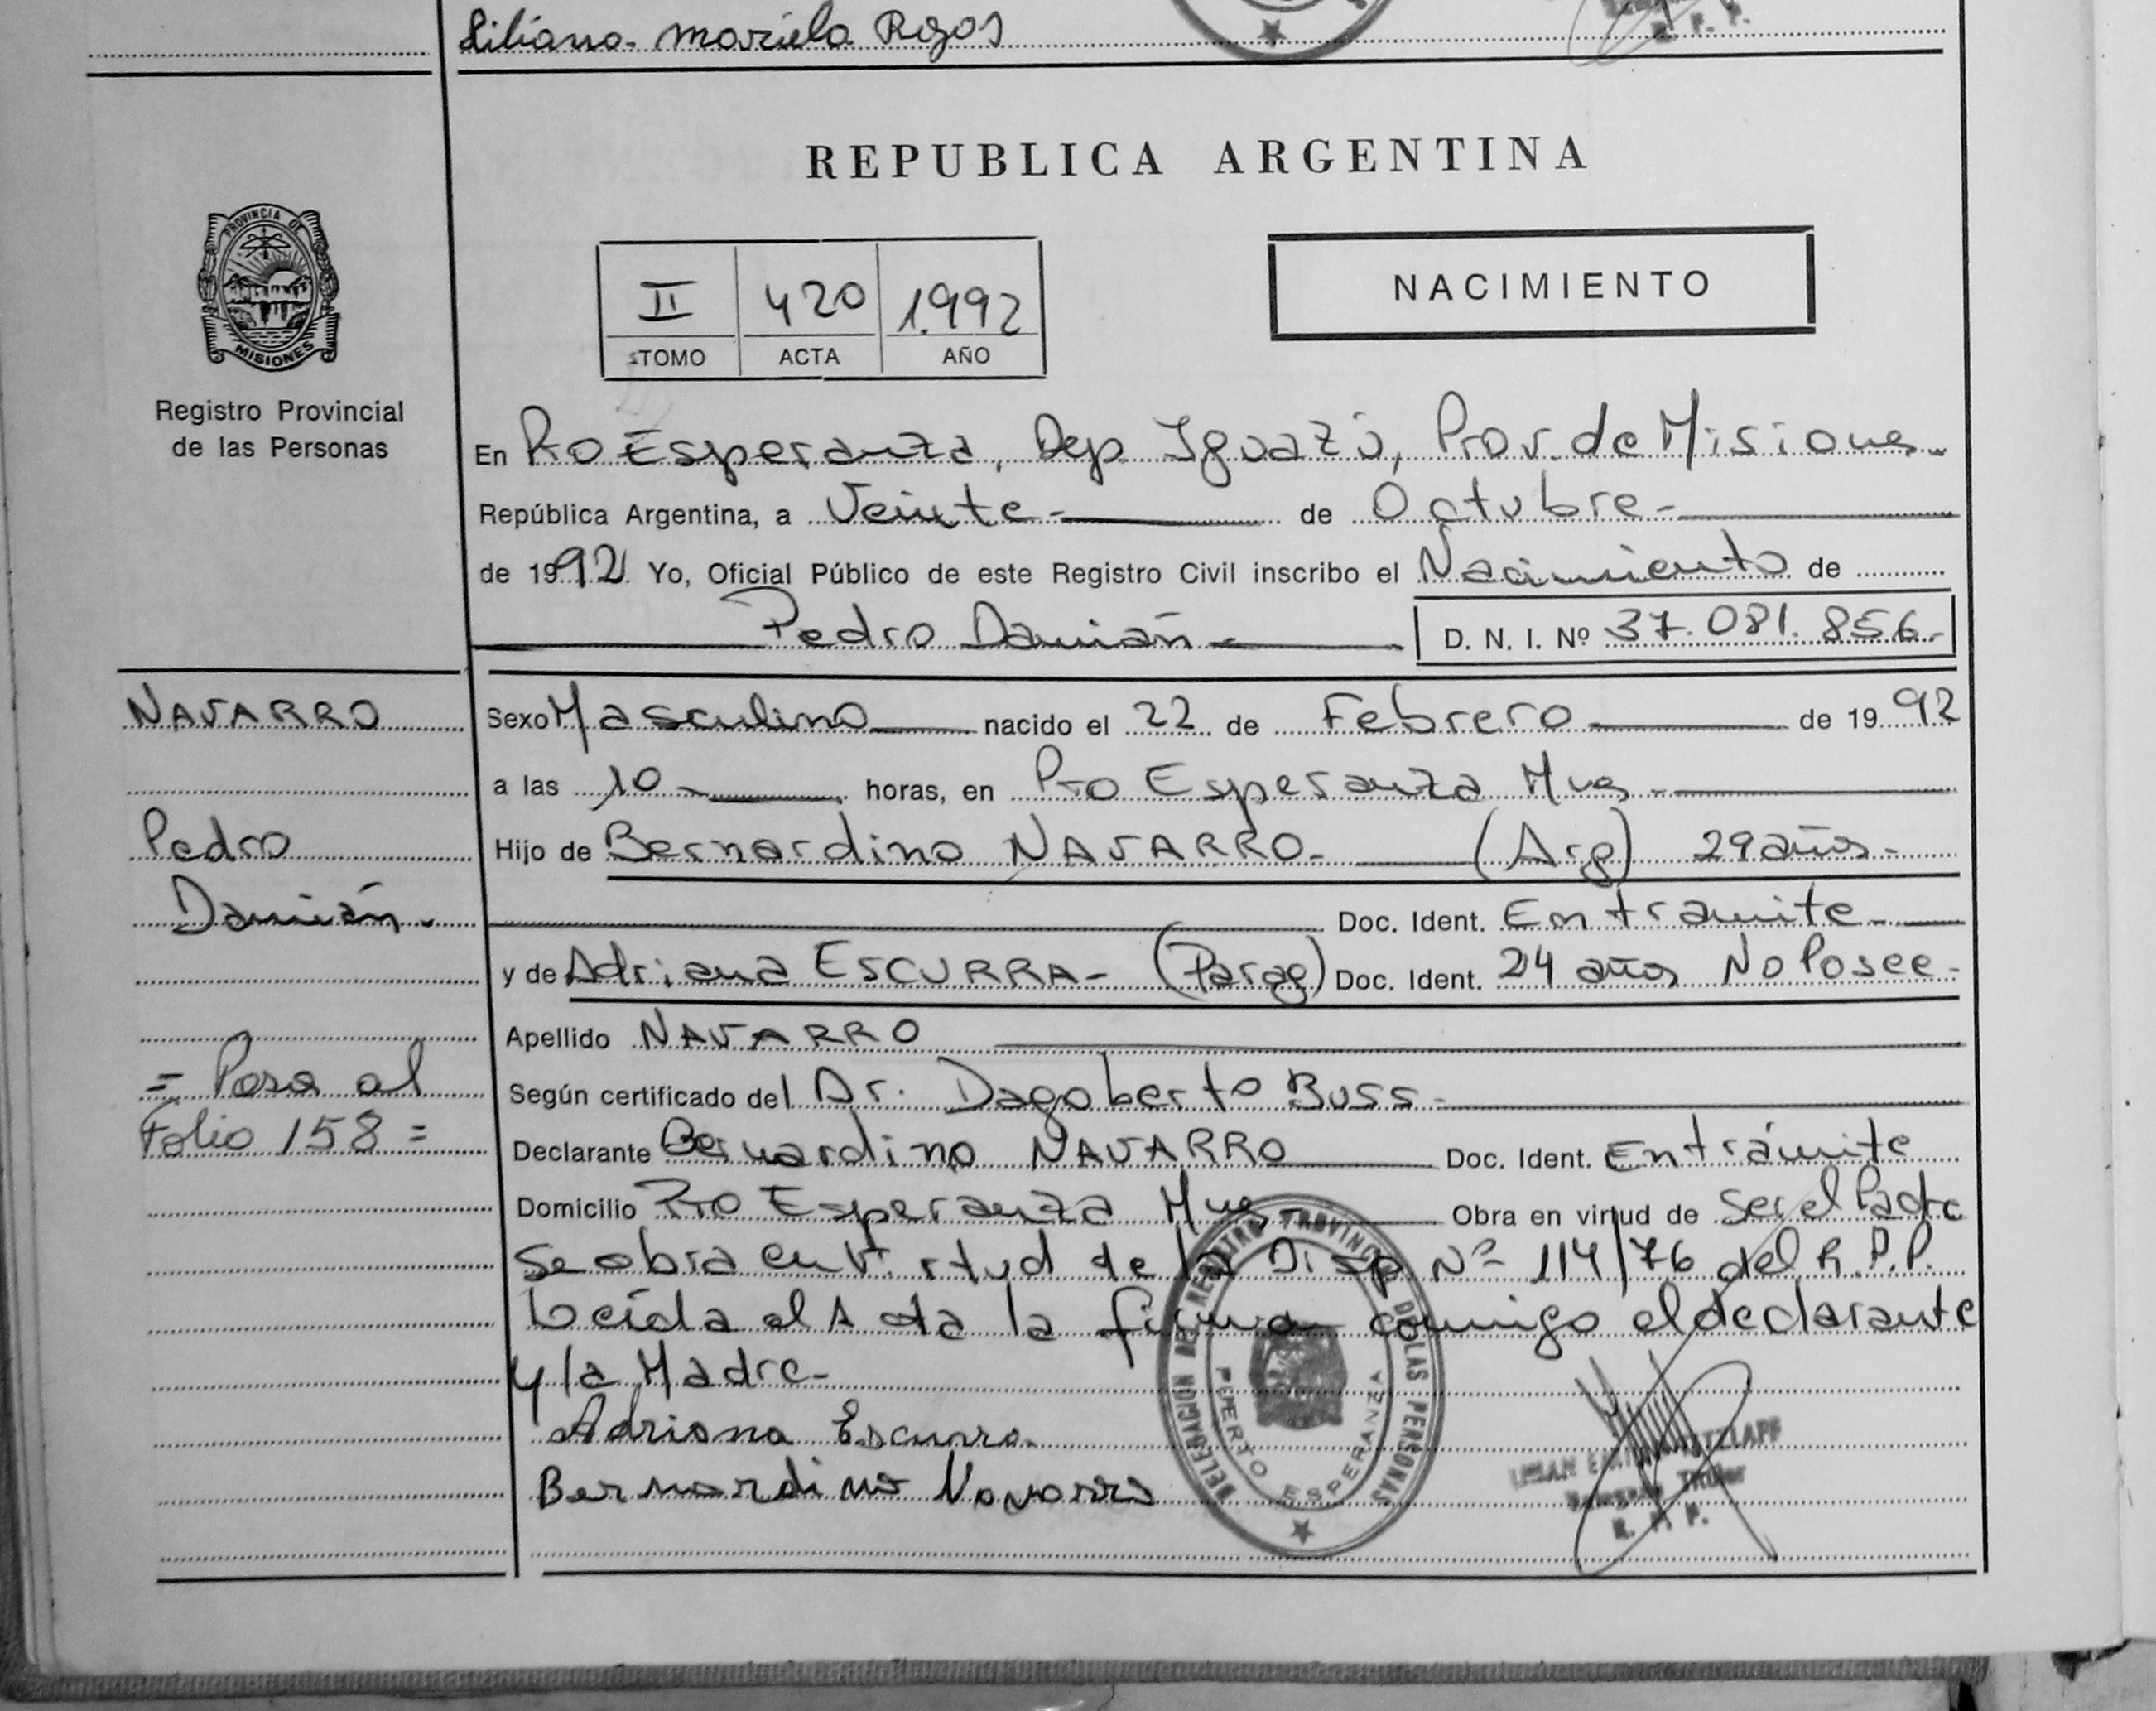 Liliana Mariela Rojas
REPUBLICA ARGENTINA
PROVINCIA DE
MISIONES
Registro Provincial
de las Personas
II 420 1.992
TOMO ACTA AÑO
NACIMIENTO
En Pto Esperanza, Dep. Iguazú, Prov. de Misiones.-
República Argentina, a Veinte.- de Octubre.-
de 1992 Yo, Oficial Público de este Registro Civil inscribo el Nacimiento de
Pedro Damián.- D. N. I. Nº 37.081.856.-
NAVARRO
Pedro
Damián.-
= Pasa al
Folio 158 =
Sexo Masculino nacido el 22 de Febrero de 1992
a las 10.- horas, en Pto Esperanza Mnes.-
Hijo de Bernardino NAVARRO.- (Arg) 29 años.-
Doc. Ident. En tramite.-
y de Adriana ESCURRA- (Parag) Doc. Ident. 24 años No Posee.-
Apellido NAVARRO
Según certificado del Dr. Dagoberto Buss.-
Declarante Bernardino NAVARRO Doc. Ident. En trámite
Domicilio Pto Esperanza Mnes.- Obra en virtud de ser el Padre
se obra en virtud de la Disp Nº 114/76 del R.P.P.
Leída el Acta la firman conmigo el declarante
y la Madre-
Adriana Escurra
Bernardino Navarro
DELEGACION DEL REGISTRO PROVINCIAL DE LAS PERSONAS
PUERTO ESPERANZA
Titular
R. P. P.